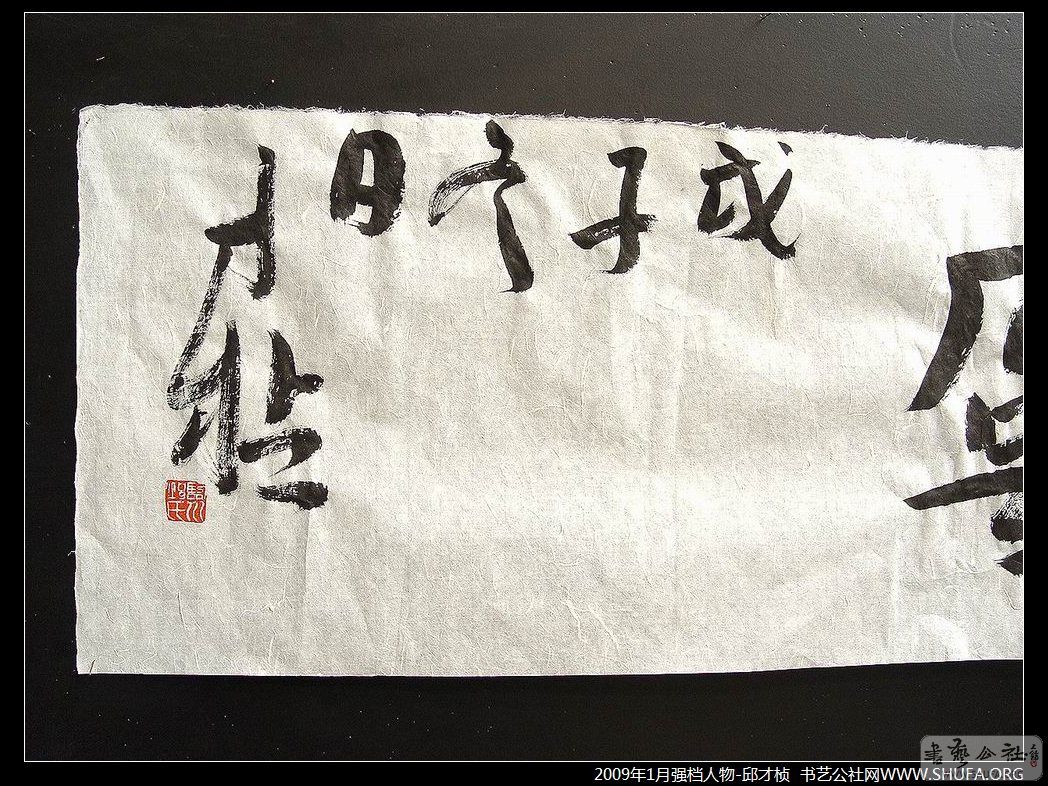 戊子冬日
才楨
書藝公社
2009年1月强档人物-邱才桢 书艺公社网WWW.SHUFA.ORG